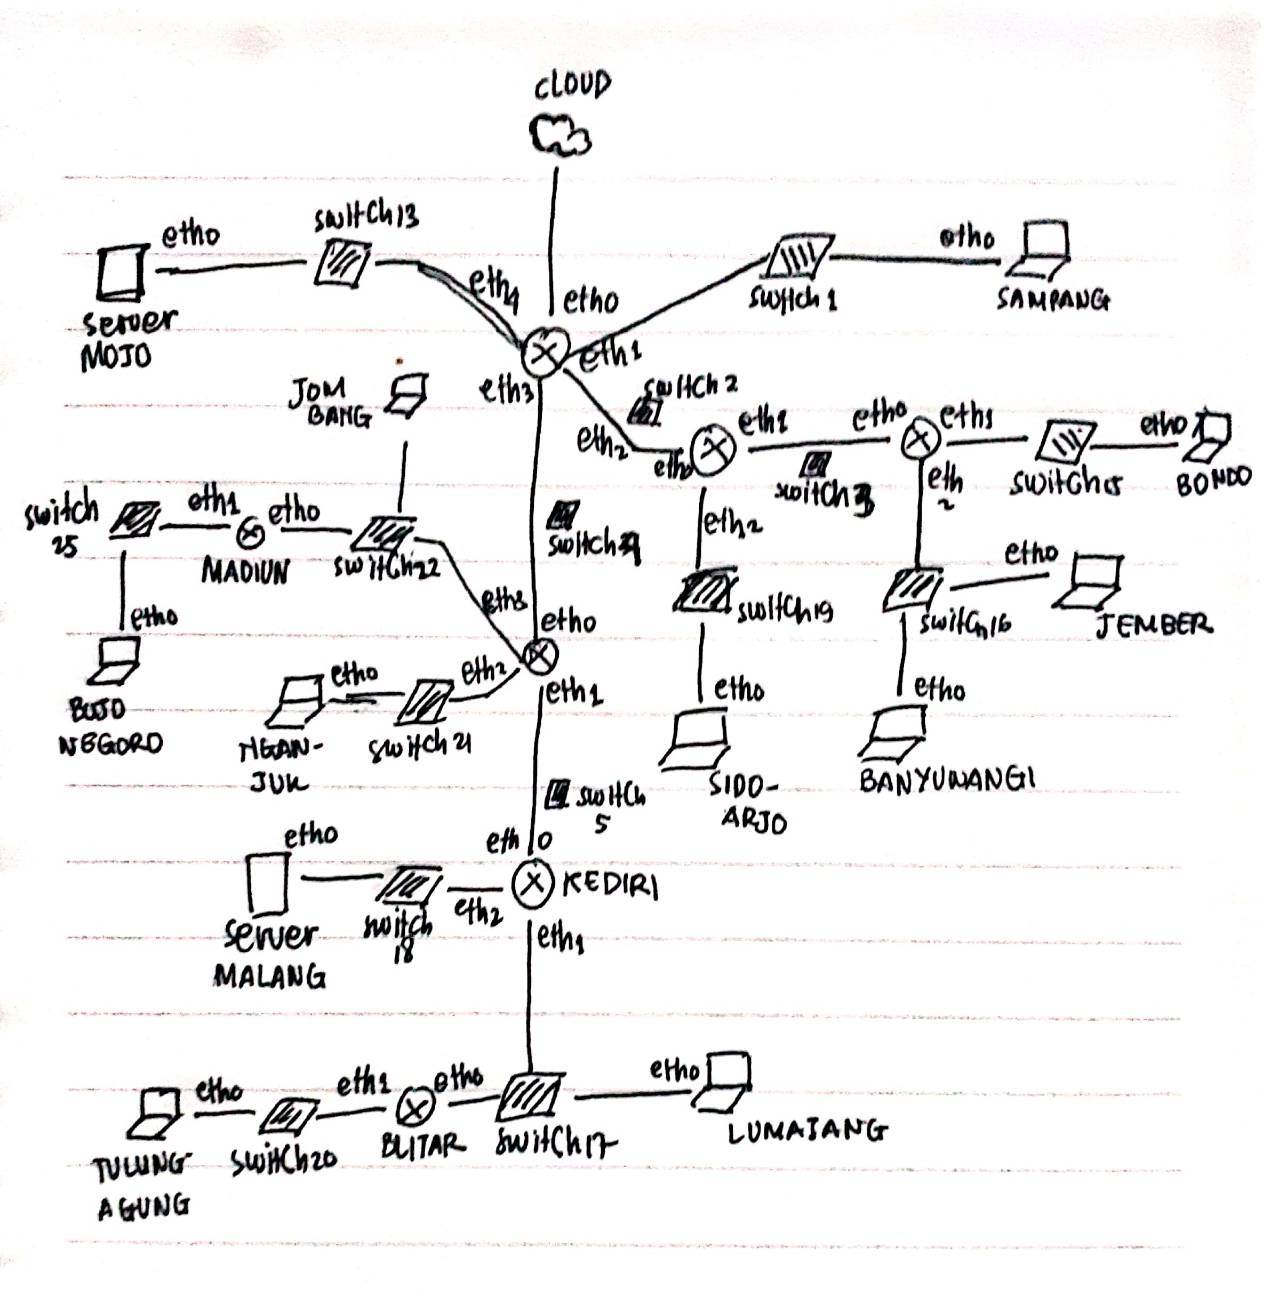 CLOUD
switch13
etho
eth4
etho
switch 1
etho
SAMPANG
server
MOJO
eth1
eth3
JOM
BANG
switch 2
eth2
etho
eth1
switch 3
etho
eth1
switch15
etho
BONDO
eth
2
switch
25
eth1
etho
MADIUN
switch22
eth2
switch19
etho
switch16
JEMBER
etho
BOJO
NEGORO
eth3
etho
etho
eth2
eth1
NGAN-
JUK
switch 21
etho
SIDO-
ARJO
etho
BANYUWANGI
switch
5
etho
eth 0
KEDIRI
server
MALANG
switch
18
eth2
eth1
etho
eth1
etho
etho
TULUNG
AGUNG
switch20
BLITAR
switch17
LUMAJANG